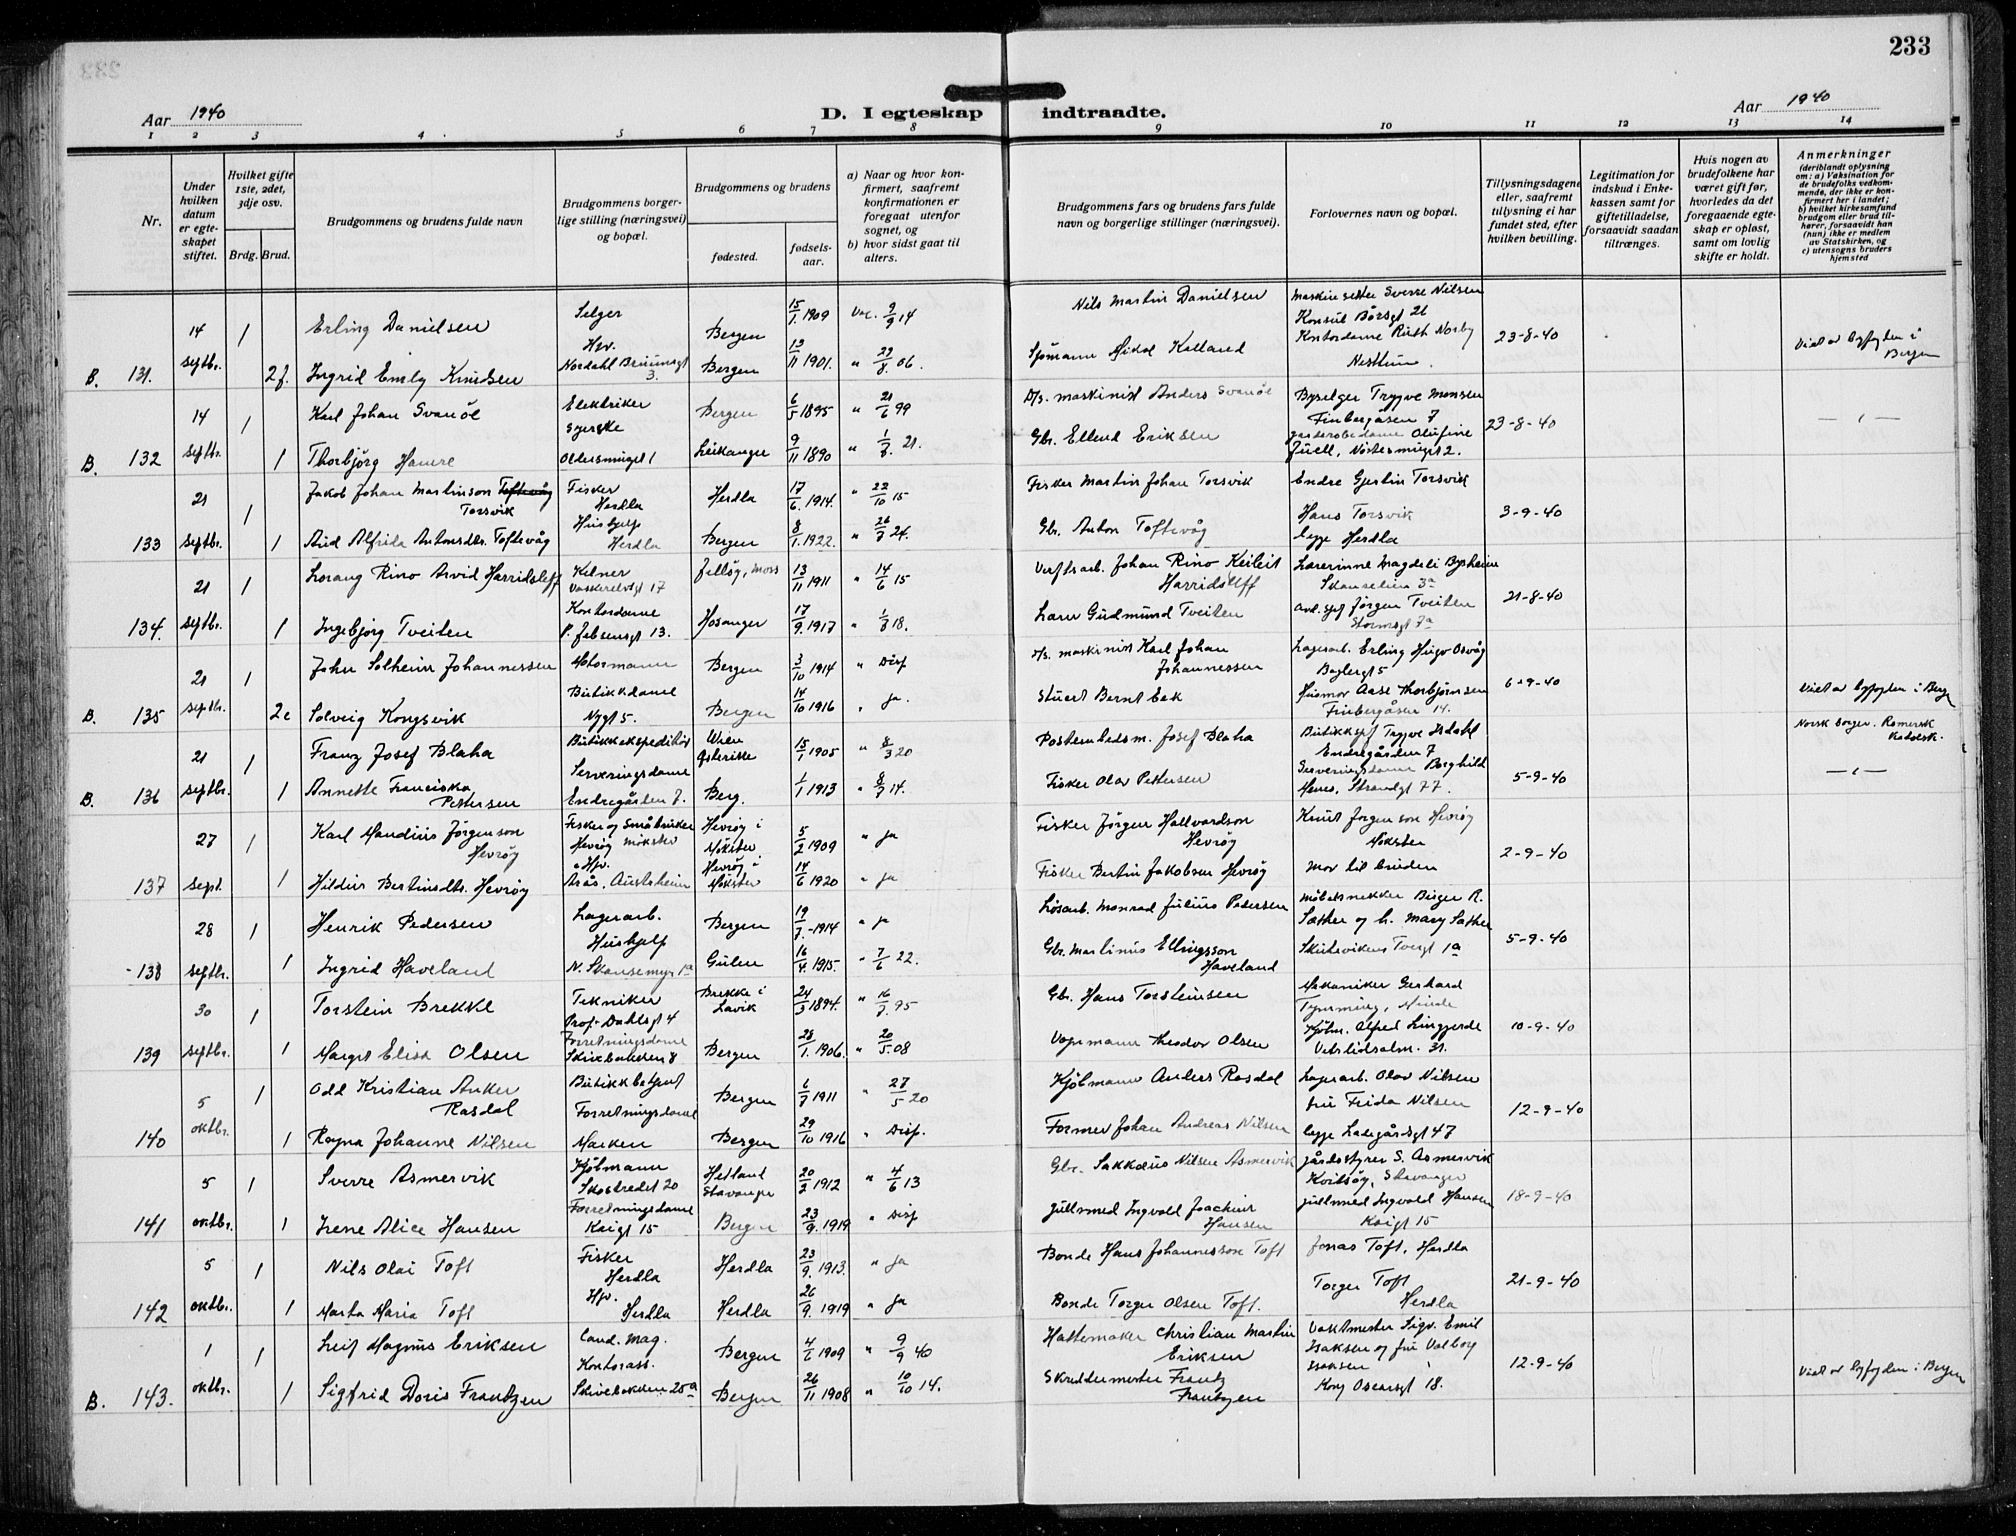 233
Aar 1940
D. I egteskap indtraadte.
Aar 1940
1 2 3 4 5 6 7 8 9 10 11 12 13 14
Nr.
Under hvilken datum er egteskapet stiftet.
Hvilket gifte 1ste, 2det, 3dje osv.
Brdg. Brud.
Brudgommens og brudens fulde navn
Brudgommens borgerlige stilling (næringsvei) og bopæl.
Brudgommens og brudens
fødested.
fødselsaar.
a) Naar og hvor konfirmert, saafremt konfirmationen er foregaat utenfor sognet, og
b) hvor sidst gaat til alters.
Brudgommens fars og brudens fars fulde navn og borgerlige stillinger (næringsvei).
Forlovernes navn og bopæl.
Tillysningsdagene eller, saafremt tillysning ei har fundet sted, efter hvilken bevilling.
Legitimation for indskud i Enkekassen samt for giftetilladelse, forsaavidt saadan tiltrænges.
Hvis nogen av brudefolkene har været gift før, hvorledes da det foregaaende egteskap er opløst, samt om lovlig skifte er holdt.
Anmerkninger (deriblandt oplysning om: a) Vaksination for de brudefolks vedkommende, der ikke er konfirmert her i landet; b) hvilket kirkesamfund brudgom eller brud tilhører, forsaavidt han (hun) ikke er medlem av Statskirken, og c) utensogns bruders hjemsted
14 1 Erling Danielsen Selger Bergen 15/1. 1909 Vac. 9/9 14 Nils Martin Danielsen Maskinsetter Sverre Nilsen
Konsul Børsgt 21
B. 131. septbr. 2 f. Ingrid Emly Knudsen Hsv. Nordahl Bruunsgt 3. Bergen 13/11 1901. " 22/8 06. Sjømann Mikal Kalland Kontordame Ruth Norby Nesttun 23-8-40 Viet av byfogden i Bergen
14 1 Karl Johan Svanöe Elektriker Bergen 6/5 1895 " 21/6 99 D/s. maskinist Anders Svanöe Byselger Trygve Monsen
Finbergåsen 7
B. 132 septbr. 1 Thorbjörg Hamre Syerske Leikanger 9/11 1890 " 1/8. 21. Gbr. Ellend Eriksen garderobedame Olufine Juell, Nöstesmuget 2. 23-8-40 — " —
21 1 Jakob Johan Martinson Toftevåg Torsvik Fisker Herdla Herdla 17/6. 1914. " 22/10 15 Fisker Martin Johan Torsvik Endre Gjertin Torsvik
133 septbr. 1 Aud Alfrida Antonsdtr. Toftevåg Husbjelp Herdla Bergen 8/1. 1922. " 26/3 24. Gbr. Anton Toftevåg Hans Torsvik begge Herdla 3-9-40
21 1 Lorang Rino Arvid Harridsleff Kelner Vaskerelvsgt 17 Jelløy, Moss 13/11 1911 " 14/6 15 Verftsarb. Johan Rino Harridsleff Lærerinne Magdeli Bysheim
Skanselien 3a
134. septbr. 1 Ingebjörg Tveiten Kontordame P. Jebsensgt 13. Hosanger 17/9. 1917 " 1/8 18. Lærer Gudmund Tveiten Jörgen Tveiten Stormsgt 7a 21-8-40
21 1 John Solheim Johannessen Motormann Bergen 3/10 1914 " Disp M/s. maskinist Karl Johan Johannessen Lagerarb. Erling Hugo Osvåg
B. 135 septbr. 2 Solveig Kongsvik Butikkdame Nygt 5. Bergen 14/10 1916 " ja. Stuert Bernt Eek Husmor Aase Thorbjørnsen Finbergåsen 14. 6-9-40 Viet av byfogden i Berg
21 1 Franz Josef Blaha Butikkekspeditör Wien Østerike 15/1 1905 " 8/3 20 Postembedsm. Josef Blaha Butikksjef Tryggve Isdahl
Endregården 7
Norsk borger. Romersk katolsk.
B. 136 septbr. 1 Annette Franciska Pettersen Serveringsdame Endregården 7. Berg. 1/1 1913 " 8/7 14. Fisker Olav Pettersen Serveringsdame Borghild Strandgt 77. 5-9-40 — " —
27 1 Karl Mandius Jörgenson Hevröy Fisker og Småbruker Hevröy Møkster Hevröy i Møkster 5/2 1909 " ja Fisker Jörgen Hallvardson Hevröy Knut Jörgenson Hevröy Møkster
137 sept. 1 Hildur Bertinsdtr. Hevröy Hsv. Austrheim Hevröy i Møkster 14/6 1920 " ja Fisker Bertin Jakobsen Hevröy Mor til bruden 2-9-40
28 1 Henrik Pedersen Lagerarb. Bergen 19/7.-1914 " ja Løsarb. Monrad Julius Pedersen Møbelsnekker Birger R. Sæther og h. Mary Sæther
138 septbr. 1 Ingrid Haveland Hushjelp N. Skansemyr 1a Gulen 16/4. 1915. " 7/6 22. Gbr. Martinus Ellingsson Haveland Skutevikens Tvergt 1a 5-9-40
30 1 Torstein Brekke Tekniker Prof. Dahlsgt 4 Brekke i Lavik 24/3 1894. " 16/7. 95 Gbr. Hans Torsteinsen Mekaniker Gerhard Minde
139 septbr. 1 Margit Elisa Olsen Forretningsdame Skivebakken 8 Bergen 28/1. 1906. " 20/5. 08 Vognmann Theodor Olsen Kjöbm. Alfred Lingjerde Vetrlidsalm. 31. 10-9-40
5 1 Odd Kristian Anker Rasdal Butikkbetjent Bergen 6/7 1911 " 27/5 20 Kjöbmann Anders Rasdal Lagerarb. Olav Nilsen
140 oktbr. 1 Ragna Johanne Nilsen Forretningsdame Marken Bergen 29/10 1916 " Disp. Former Johan Andreas Nilsen fru Frida Nilsen begge Ladegårdsgt 47 12-9-40
5 1 Sverre Asmervik Kjöbmann Skostredet 20 Hetland Stavanger 20/2 1912 " 4/6 13 Gbr. Sakkæus Nilsen Asmervik Gårdsstyrer S. Asmervik Kvitsöy, Stavanger
141 oktbr. 1 Irene Alice Hansen Forretningsdame Kaigt 15 Bergen 23/9. 1919 " Disp Gullsmed Ingvald Joachim Hansen Gullsmed Ingvald Hansen Kaigt 15 18-9-40
5 1 Nils Olai Toft Fisker Herdla Herdla 23/9. 1913. " ja Bonde Hans Johannesson Toft Jonas Toft, Herdla
142 oktbr. 1 Marta Maria Toft Hsv. Herdla Herdla 26/9. 1919 " ja Bonde Torger Olsen Toft. Torger Toft Herdla 21-9-40
1 1 Leif Magnus Eriksen Cand. mag. Bergen 4/6 1909 " 9/9 40 Hattemaker Christian Martin Eriksen Vaktmester Sigv. Emil Isaksen og fru Valborg Isaksen
B. 143. oktbr. 1 Sigfrid Doris Frantzen Kontorass. Skivebakken 25a Bergen 26/11 1908 " 10/10 14. Skreddermester Frantz Frantzen Kong Oscarsgt 18. 12-9-40 Viet av byfogden i Bergen